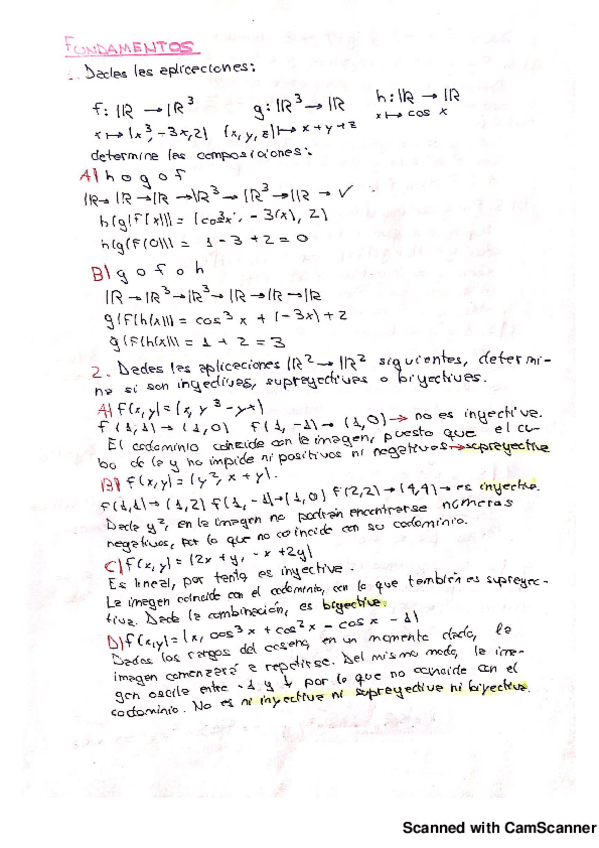 FUNDAMENTOS
1. Dadas las aplicaciones:
f: IR → IR³ g: IR³ → IR h: IR → IR
x ↦ (x³, -3x, 2) (x, y, z) ↦ x + y + z x ↦ cos x
determine las composiciones:
A) h o g o f
IR → IR → IR → IR³ → IR³ → IR → ✓
h(g(f(x))) = (cos³x, - 3(x), 2)
h(g(f(0))) = 1 - 3 + 2 = 0
B) g o f o h
IR → IR³ → IR³ → IR → IR → IR
g(f(h(x))) = cos³ x + (-3x) + 2
g(f(h(x))) = 1 + 2 = 3
2. Dadas las aplicaciones IR² → IR² siguientes, determi-
na si son inyectivas, suprayectivas o biyectivas.
A) f(x,y) = (x, y³ - yx)
f(1,1) → (1,0) f(1,-1) → (1,0) → no es inyectiva.
El codominio coincide con la imagen, puesto que el cu-
bo de la y no impide ni positivos ni negativos → suprayectiva
B) f(x,y) = (y², x + y).
f(1,1) → (1,2) f(1,-1) → (1,0) f(2,2) → (4,4) → es inyectiva.
Dada y², en la imagen no podrán encontrarse números
negativos, por lo que no coincide con su codominio.
C) f(x,y) = (2x + y, -x + 2y)
Es lineal, por tanto es inyectiva.
La imagen coincide con el codominio, con lo que también es suprayec-
tiva. Dada la combinación, es biyectiva.
D) f(x,y) = (x, cos³ x + cos² x - cos x - 1)
Dados los rangos del coseno, en un momento dado, la
imagen comenzará a repetirse. Del mismo modo, la ima-
gen oscila entre -1 y 1 por lo que no coincide con el
codominio. No es ni inyectiva ni suprayectiva ni biyectiva.
Scanned with CamScanner